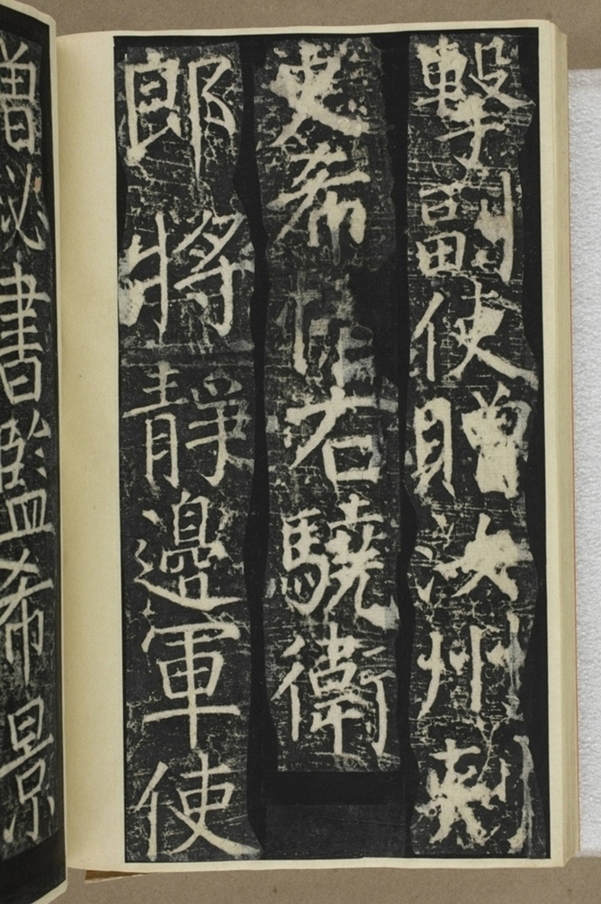 擊副使贈汝州刺
史希右驍衛
郎將靜邊軍使
贈秘書監希景